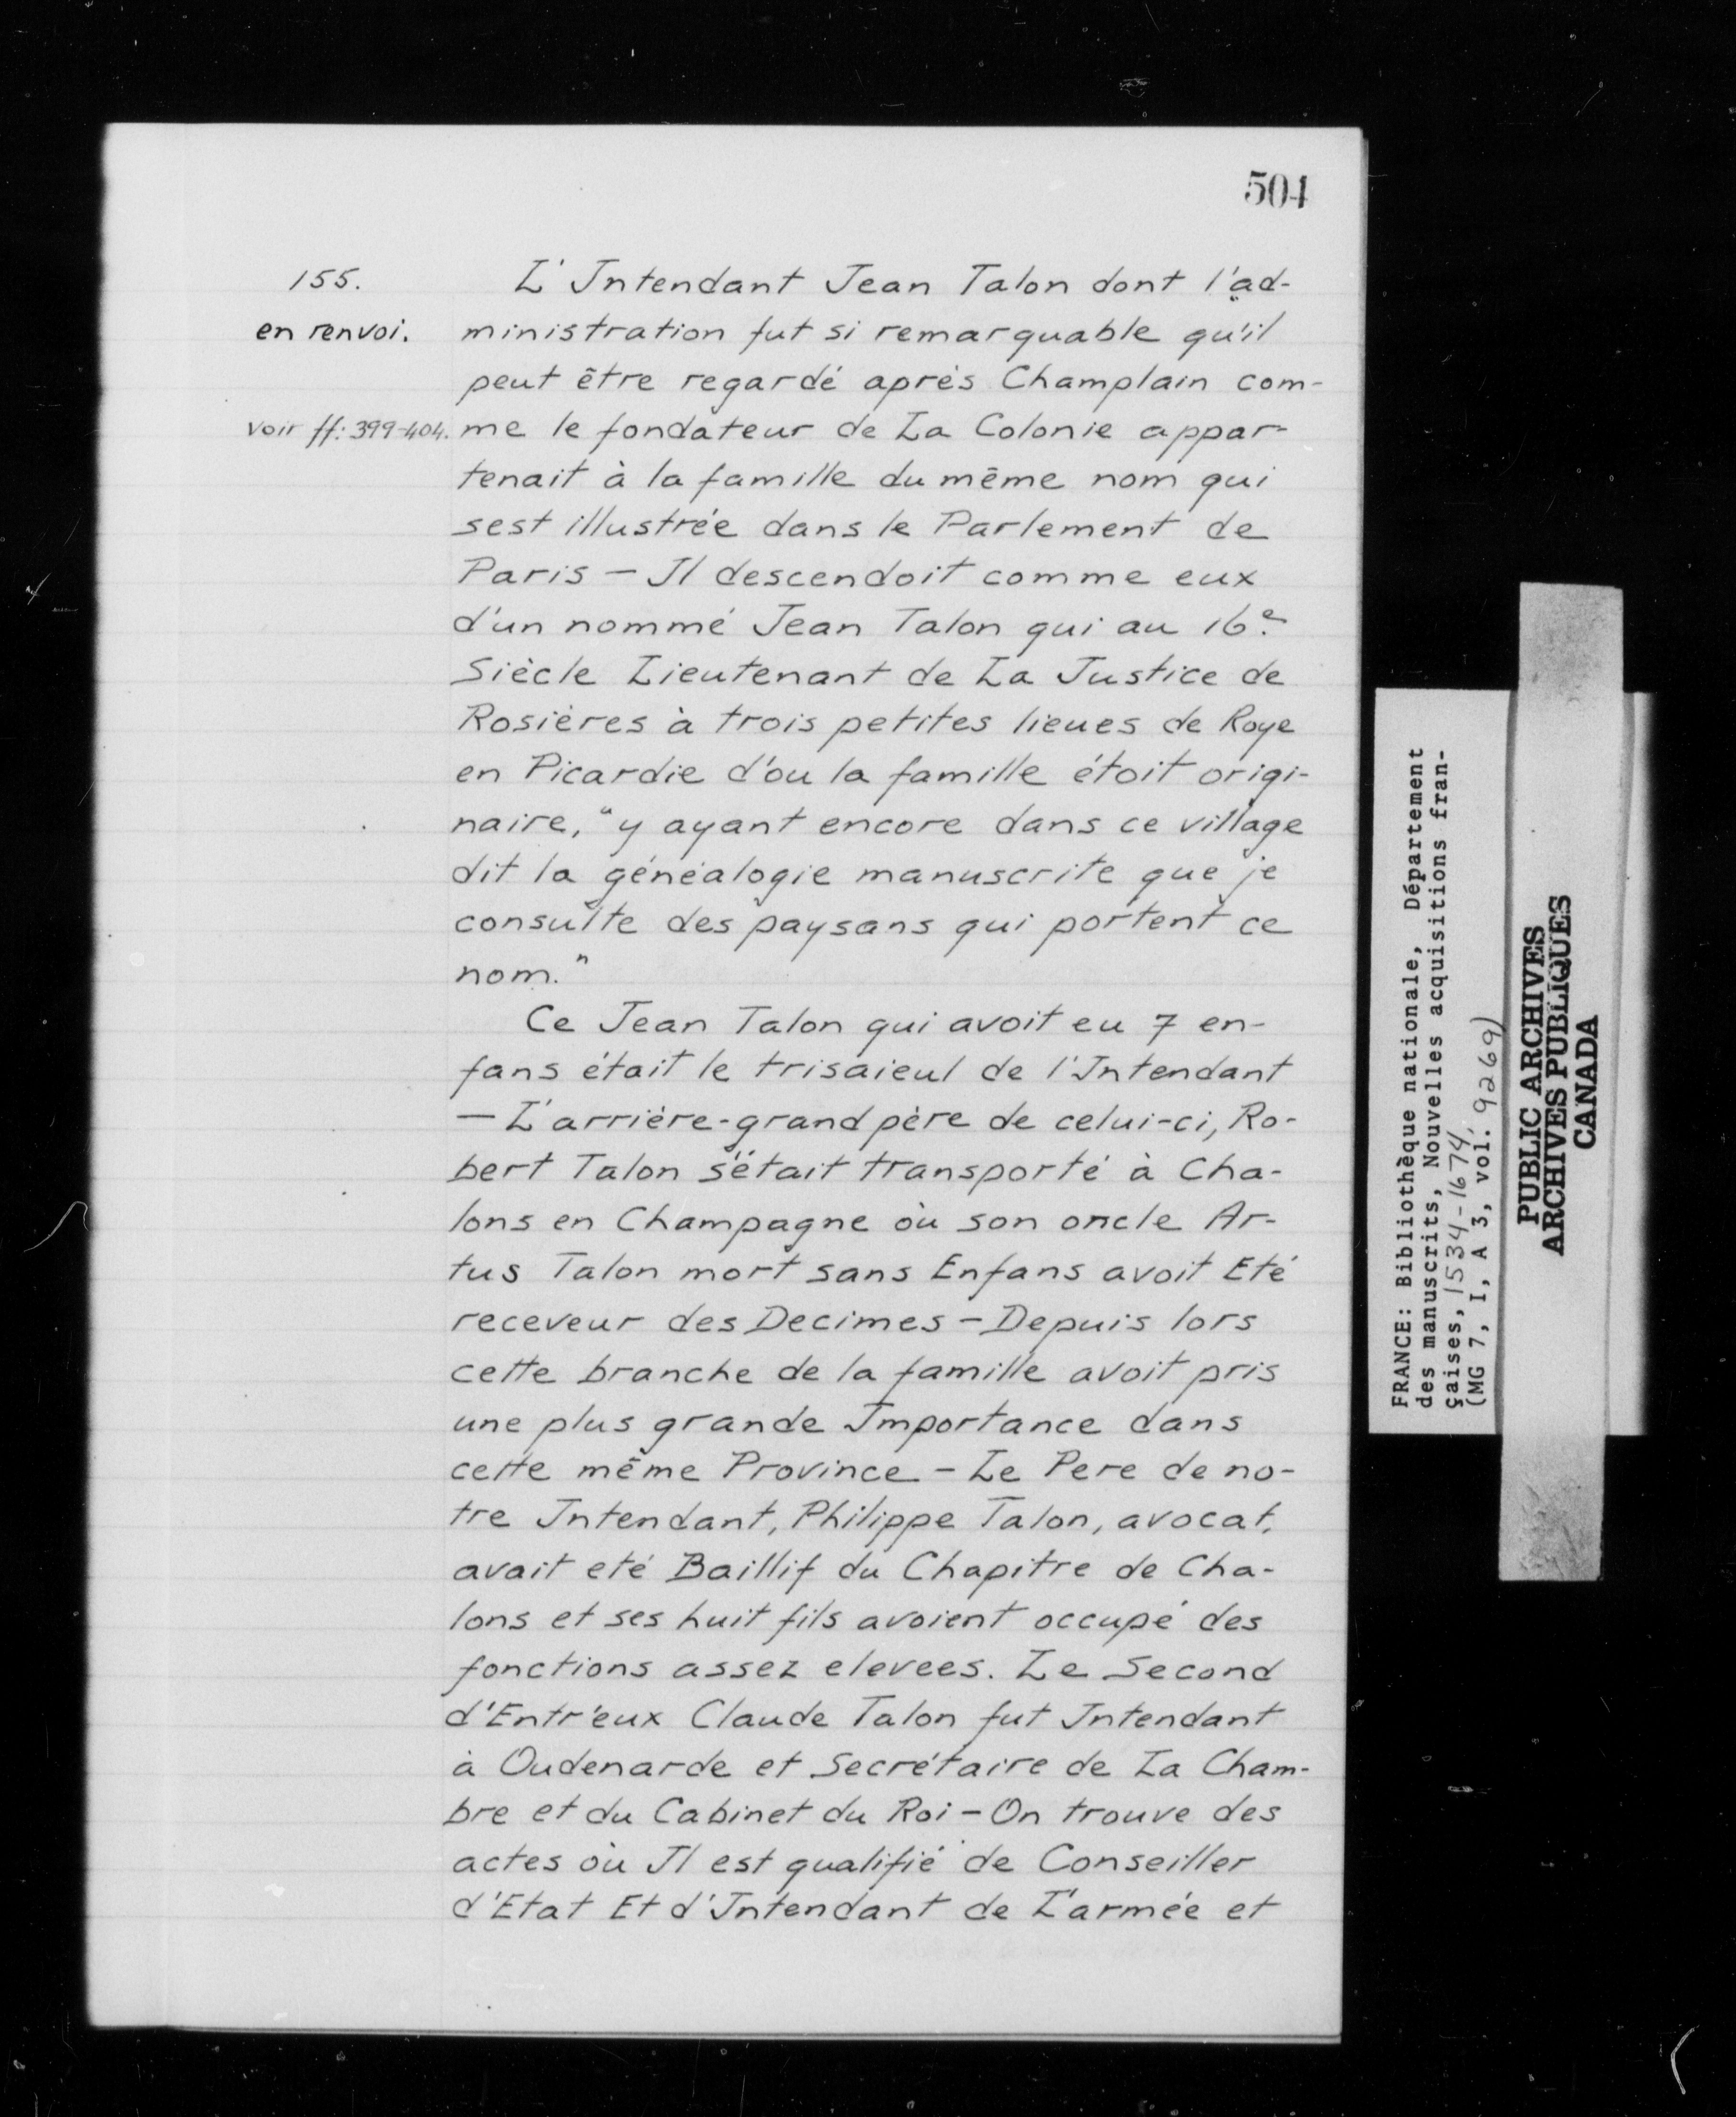 504
155.
en renvoi.
voir ff: 399-404.
L'Intendant Jean Talon dont l'ad-
ministration fut si remarquable qu'il
peut être regardé après Champlain com-
me le fondateur de La Colonie appar-
tenait à la famille du même nom qui
sest illustrée dans le Parlement de
Paris — Il descendoit comme eux
d'un nommé Jean Talon qui au 16e
Siècle Lieutenant de La Justice de
Rosières à trois petites lieues de Roye
en Picardie d'ou la famille étoit origi-
naire, "y ayant encore dans ce village
dit la généalogie manuscrite que je
consulte des paysans qui portent ce
nom."
Ce Jean Talon qui avoit eu 7 en-
fans était le trisaieul de l'Intendant
— L'arrière-grand père de celui-ci, Ro-
bert Talon s'était transporté à Cha-
lons en Champagne où son oncle Ar-
tus Talon mort sans Enfans avoit Eté
receveur des Decimes — Depuis lors
cette branche de la famille avoit pris
une plus grande Importance dans
cette même Province — Le Pere de no-
tre Intendant, Philippe Talon, avocat,
avait eté Baillif du Chapitre de Cha-
lons et ses huit fils avoient occupé des
fonctions assez elevees. Le Second
d'Entr'eux Claude Talon fut Intendant
à Oudenarde et Secrétaire de La Cham-
bre et du Cabinet du Roi — On trouve des
actes où Il est qualifié de Conseiller
d'Etat Et d'Intendant de L'armée et
FRANCE: Bibliothèque nationale, Département
des manuscrits, Nouvelles acquisitions fran-
çaises, 1534-1674
(MG 7, I, A 3, vol. 9269)
PUBLIC ARCHIVES
ARCHIVES PUBLIQUES
CANADA